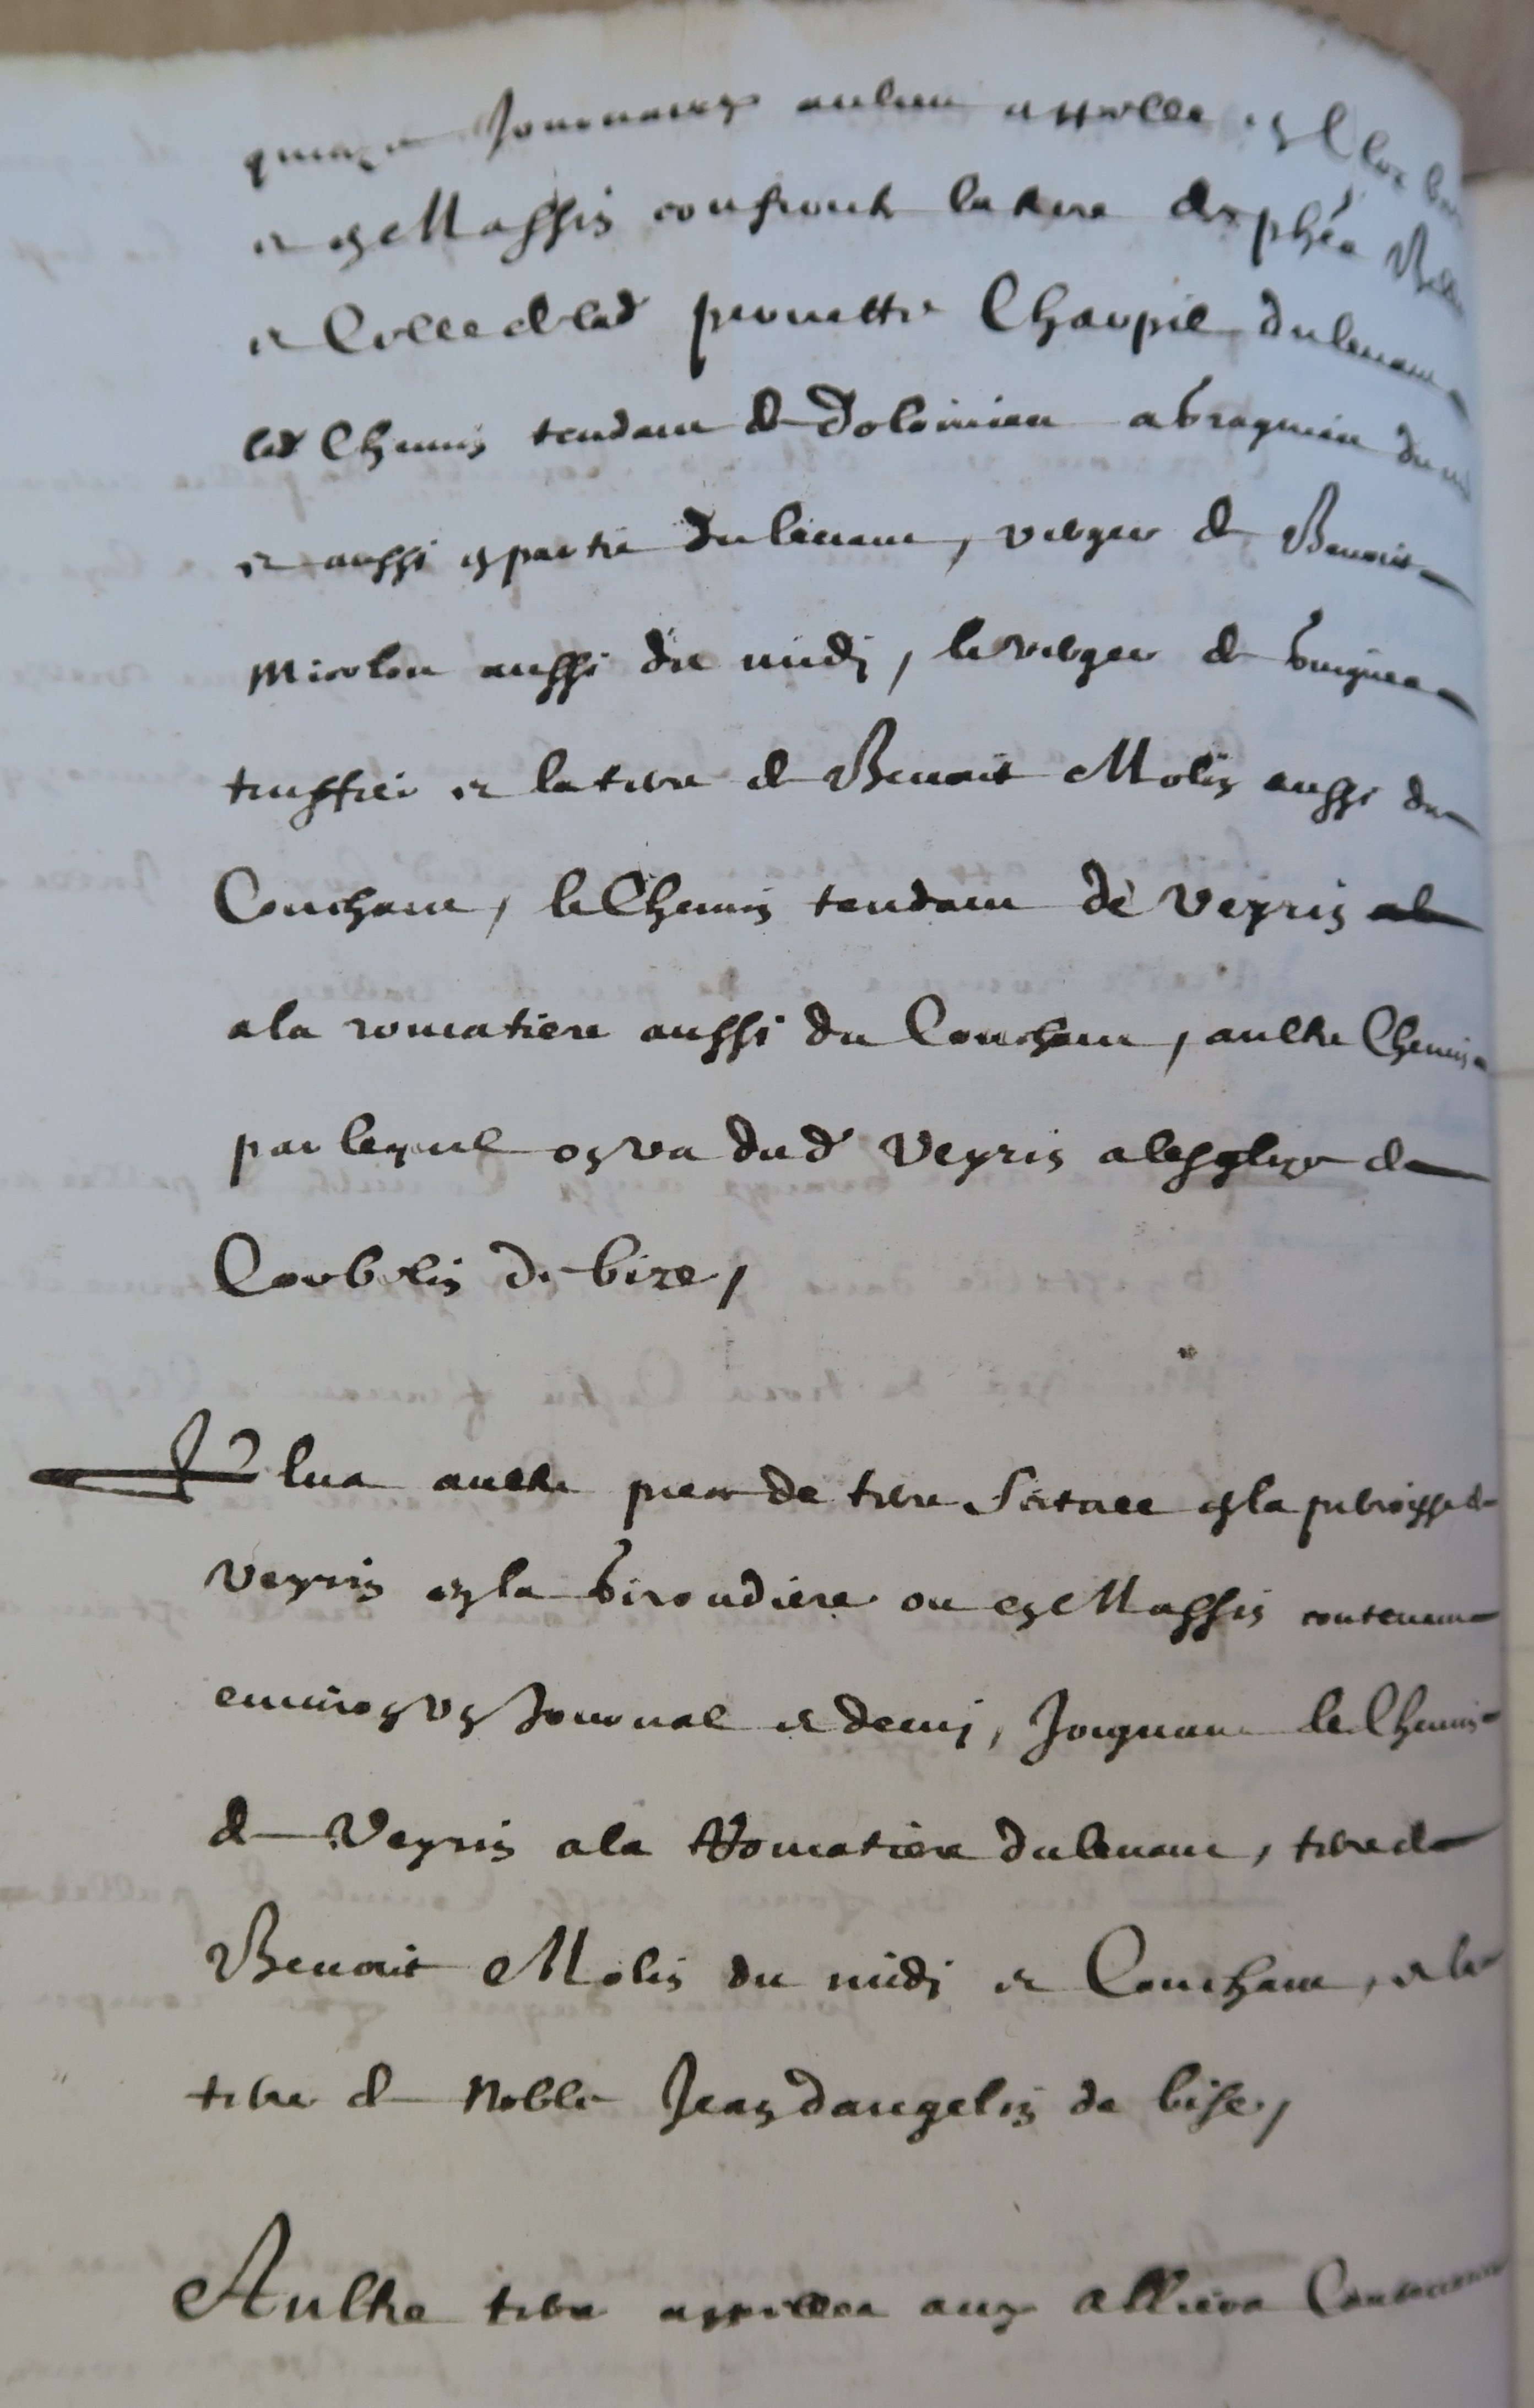 quinze Journaulx au lieu appelle en
et en Massin confronte la terre de phée
et Celle de lad pernette Charpil du levant
led Chemin tendant de Dolomieu a Vraquieu du
et aussi en partie du levant, verger de Benoit
Micolon aussi du midi, le verger de
truffier et la terre de Benoit Molin aussi du
Couchant, le Chemin tendant de Veyrin
a la romatiere aussi du Couchant, aultre Chemin
par lequel on va dud Veyrin a lesglize de
Corbelin de bize,
Plus aultre piece de terre Scituee en la parroisse de
Veyrin en la Girondiere ou en Massin contenant
environ un Journal et demy, Joignant le Chemin
de Veyrin a la Romatiere du levant, terre de
Benoit Molin du midi et Couchant, et la
terre de Noble Jean dangelin de bise,
Aultre terre appellee aux allieres Contenant